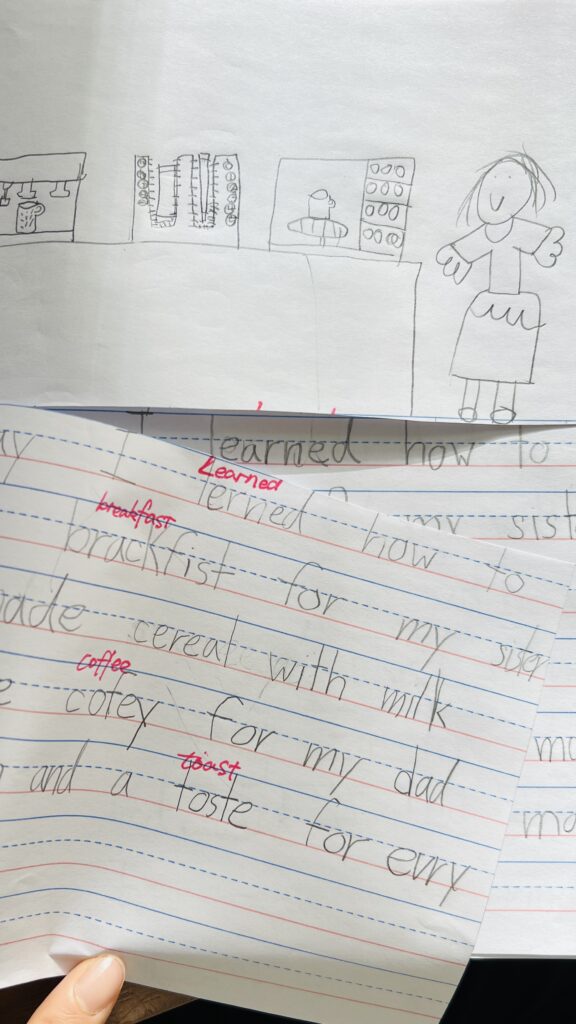 learned how to
my sist
ay I lerned how to
Learned
brackfist for my sister
breakfast
made cereal with milk
e cofey for my dad
coffee
and a toste for evry
toast
mo
mo